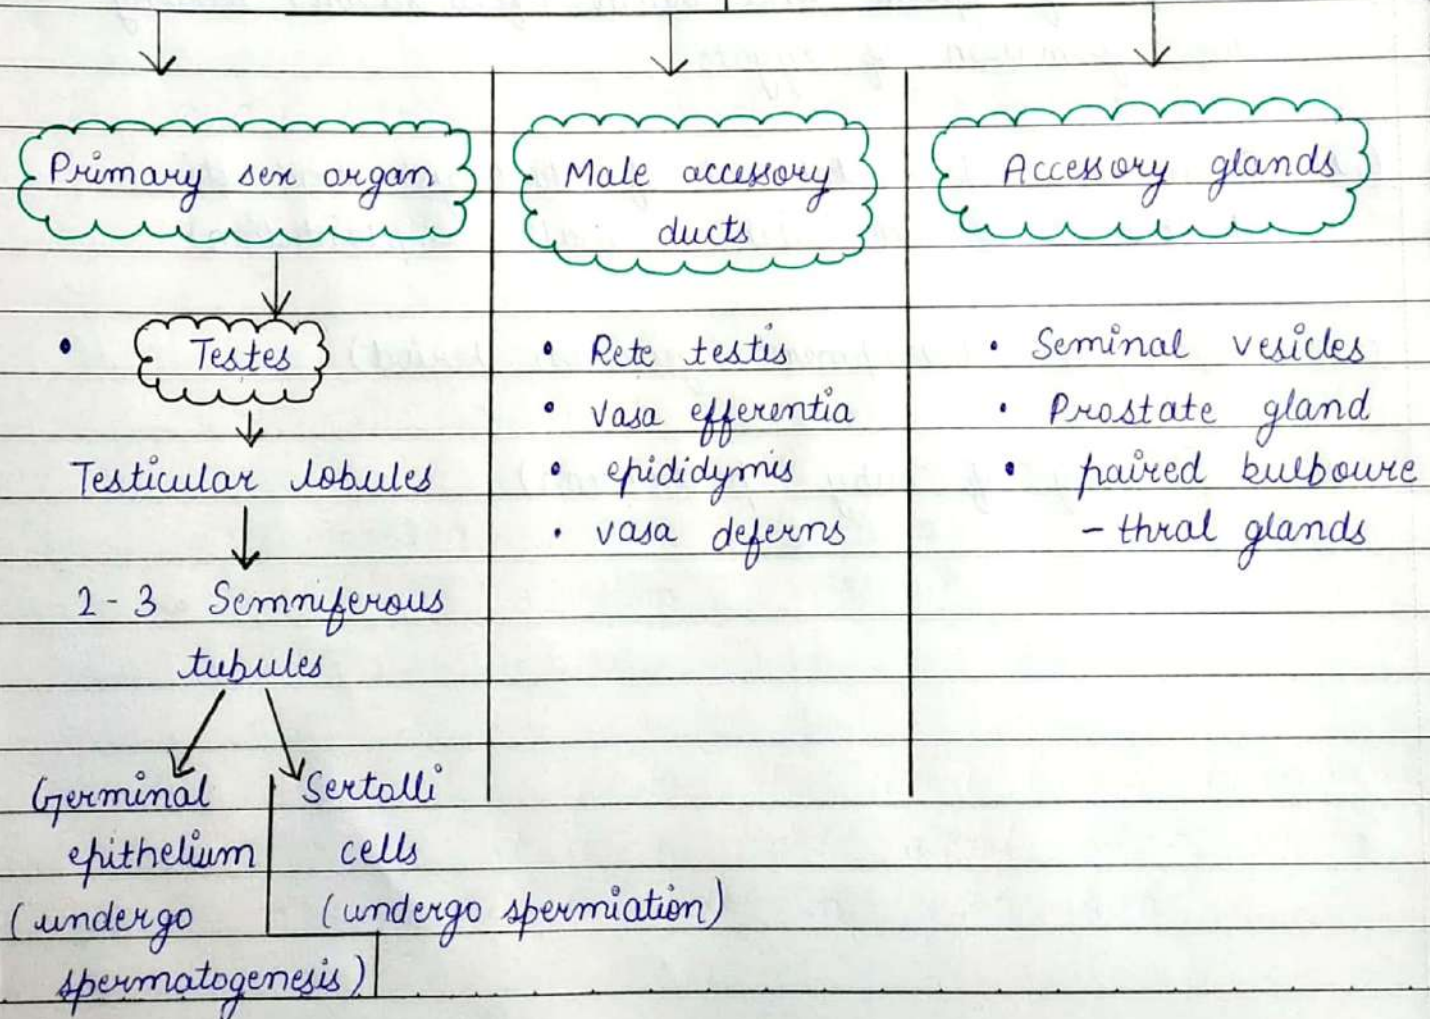 Primary sex organ
• Testes
Testicular lobules
2-3 Semniferous
tubules
Germinal
epithelium
(undergo
spermatogenesis)
Sertolli
cells
(undergo spermiation)
Male accessory
ducts
• Rete testis
• vasa efferentia
• epididymis
• vasa deferns
Accessory glands
• Seminal vesicles
• Prostate gland
• paired bulboure
- thral glands